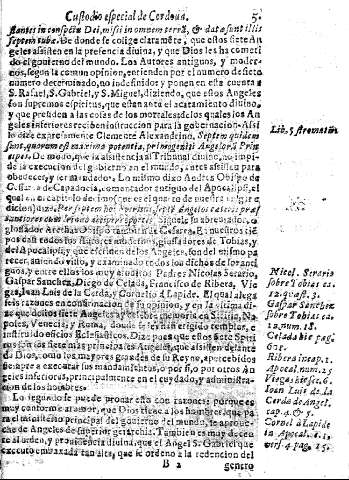 Custodio especial de Cordoua. 5.
stantes in conspectu Dei, missi in omnem terrã, & datæ sunt illis
septem tubæ. De donde se colige claramẽte, que estos siete An
geles assisten en la presẽcia diuina, y que Dios les ha cometi
do el gouierno del mundo. Los Autores antiguos, y moder-
nos, segun la comun opinion, entienden por el numero de siete
numero determinado, no indefinido, y ponen en esta cuenta à
S. Rafael, S. Gabriel, y S. Miguel, diziendo, que estos Angeles
son supremos espiritus, que estan ante el acatamiento diuino,
y que presiden a las cosas de los mortales, de los quales los An
geles inferiores reciben instruccion para la gouernacion. Assi
lo dize expressamente Clemente Alexandrino. Septem quidem
sunt, quorum est maxima potentia, primogeniti Angelorũ Prin
cipes. De modo, que la assistencia al Tribunal diuino, no impi-
de la execucion del gobierno en el mundo, antes assisten para
obedecer, y ser mandados. Lo mismo dixo Andrea Obispo de
Cesarea de Capadocia, comentador antiguo del Apocalipsi, el
qual
glossador Arethas Obispo tambien de Cesarea. E nuestros tiẽ
pos casi todos los Autores modernos, glossadores de Tobias, y
del Apocalipsi, que escriuen de los Angeles, son del mismo pa
recer, auiendo visto, y examinado todos los dichos de los anti
guos, y entre ellos los muy doctos Padres Nicolas Serario,
Gaspar Sanchez, Diego de Celada, Francisco de Ribera, Vie
gas, Iuan Luis de la Cerda, y Cornelio à Lapide. El qual alega
seis razones en confirmacion de su opinion, y en la vltima di-
ze que destos siete Angeles ay celebre memoria en Sicilia, Na
poles, Venecia, y Roma, donde les han erigido templos, e
instituido oficios Eclesiasticos. Dize pues que estos siete Spiri
tus son los siete mas principales Angeles, que assisten delante
de Dios, como los mayores grandes de su Reyno, apercebidos
siempre a executar sus mandamientos, o por si, o por otros An
geles inferiores, principalmente en el cuydado, y administra-
cion de los hombres.
Lo segundo se puede prouar esto con razones: porque es
muy conforme al amor, que Dios tiene a los hombres, que pa
ra el ministerio principal del gouierno del mundo, se aproue-
che de Angeles de superior gerarchia. Tambien es muy decen
te al orden, y prouidencia diuina, que el Angel S. Gabriel que
executò embaxada tan alta, que se ordenò a la redencion del
B 2 genero
Lib. 5 stromatũ
Nicol. Serario
sobre Tobias ca.
12. quæst. 3.
Gaspar Sanchez
sobre Tobias ca.
12. num. 18.
Celada hic pag.
621.
Ribera in cap. 1.
Apocal. num. 25
Viegas hic sec. 6.
Ioan Luis de la
Cerda de Angel.
cap. 4. & 5.
Cornel. à Lapide
in Apocal. c. 1.
vers. 4. pag. 15.